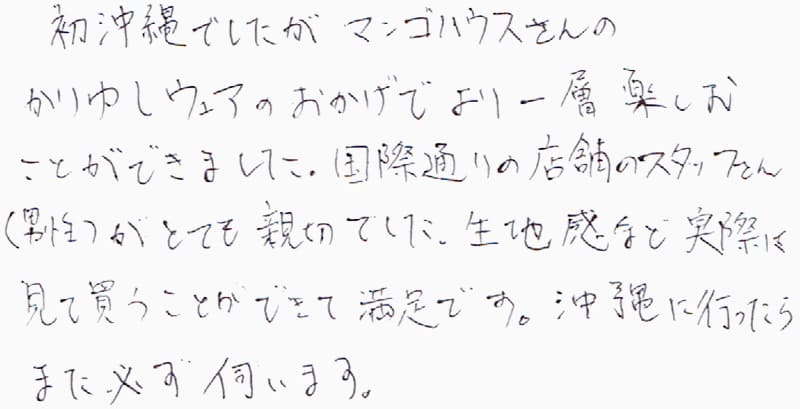 初沖縄でしたが マンゴハウスさんの
かりゆしウェアのおかげで より一層 楽しむ
ことができました。国際通りの店舗のスタッフさん
(男性)がとても 親切でした。生地感など 実際に
見て買うことができて 満足です。沖縄に行ったら
また必ず 伺います。